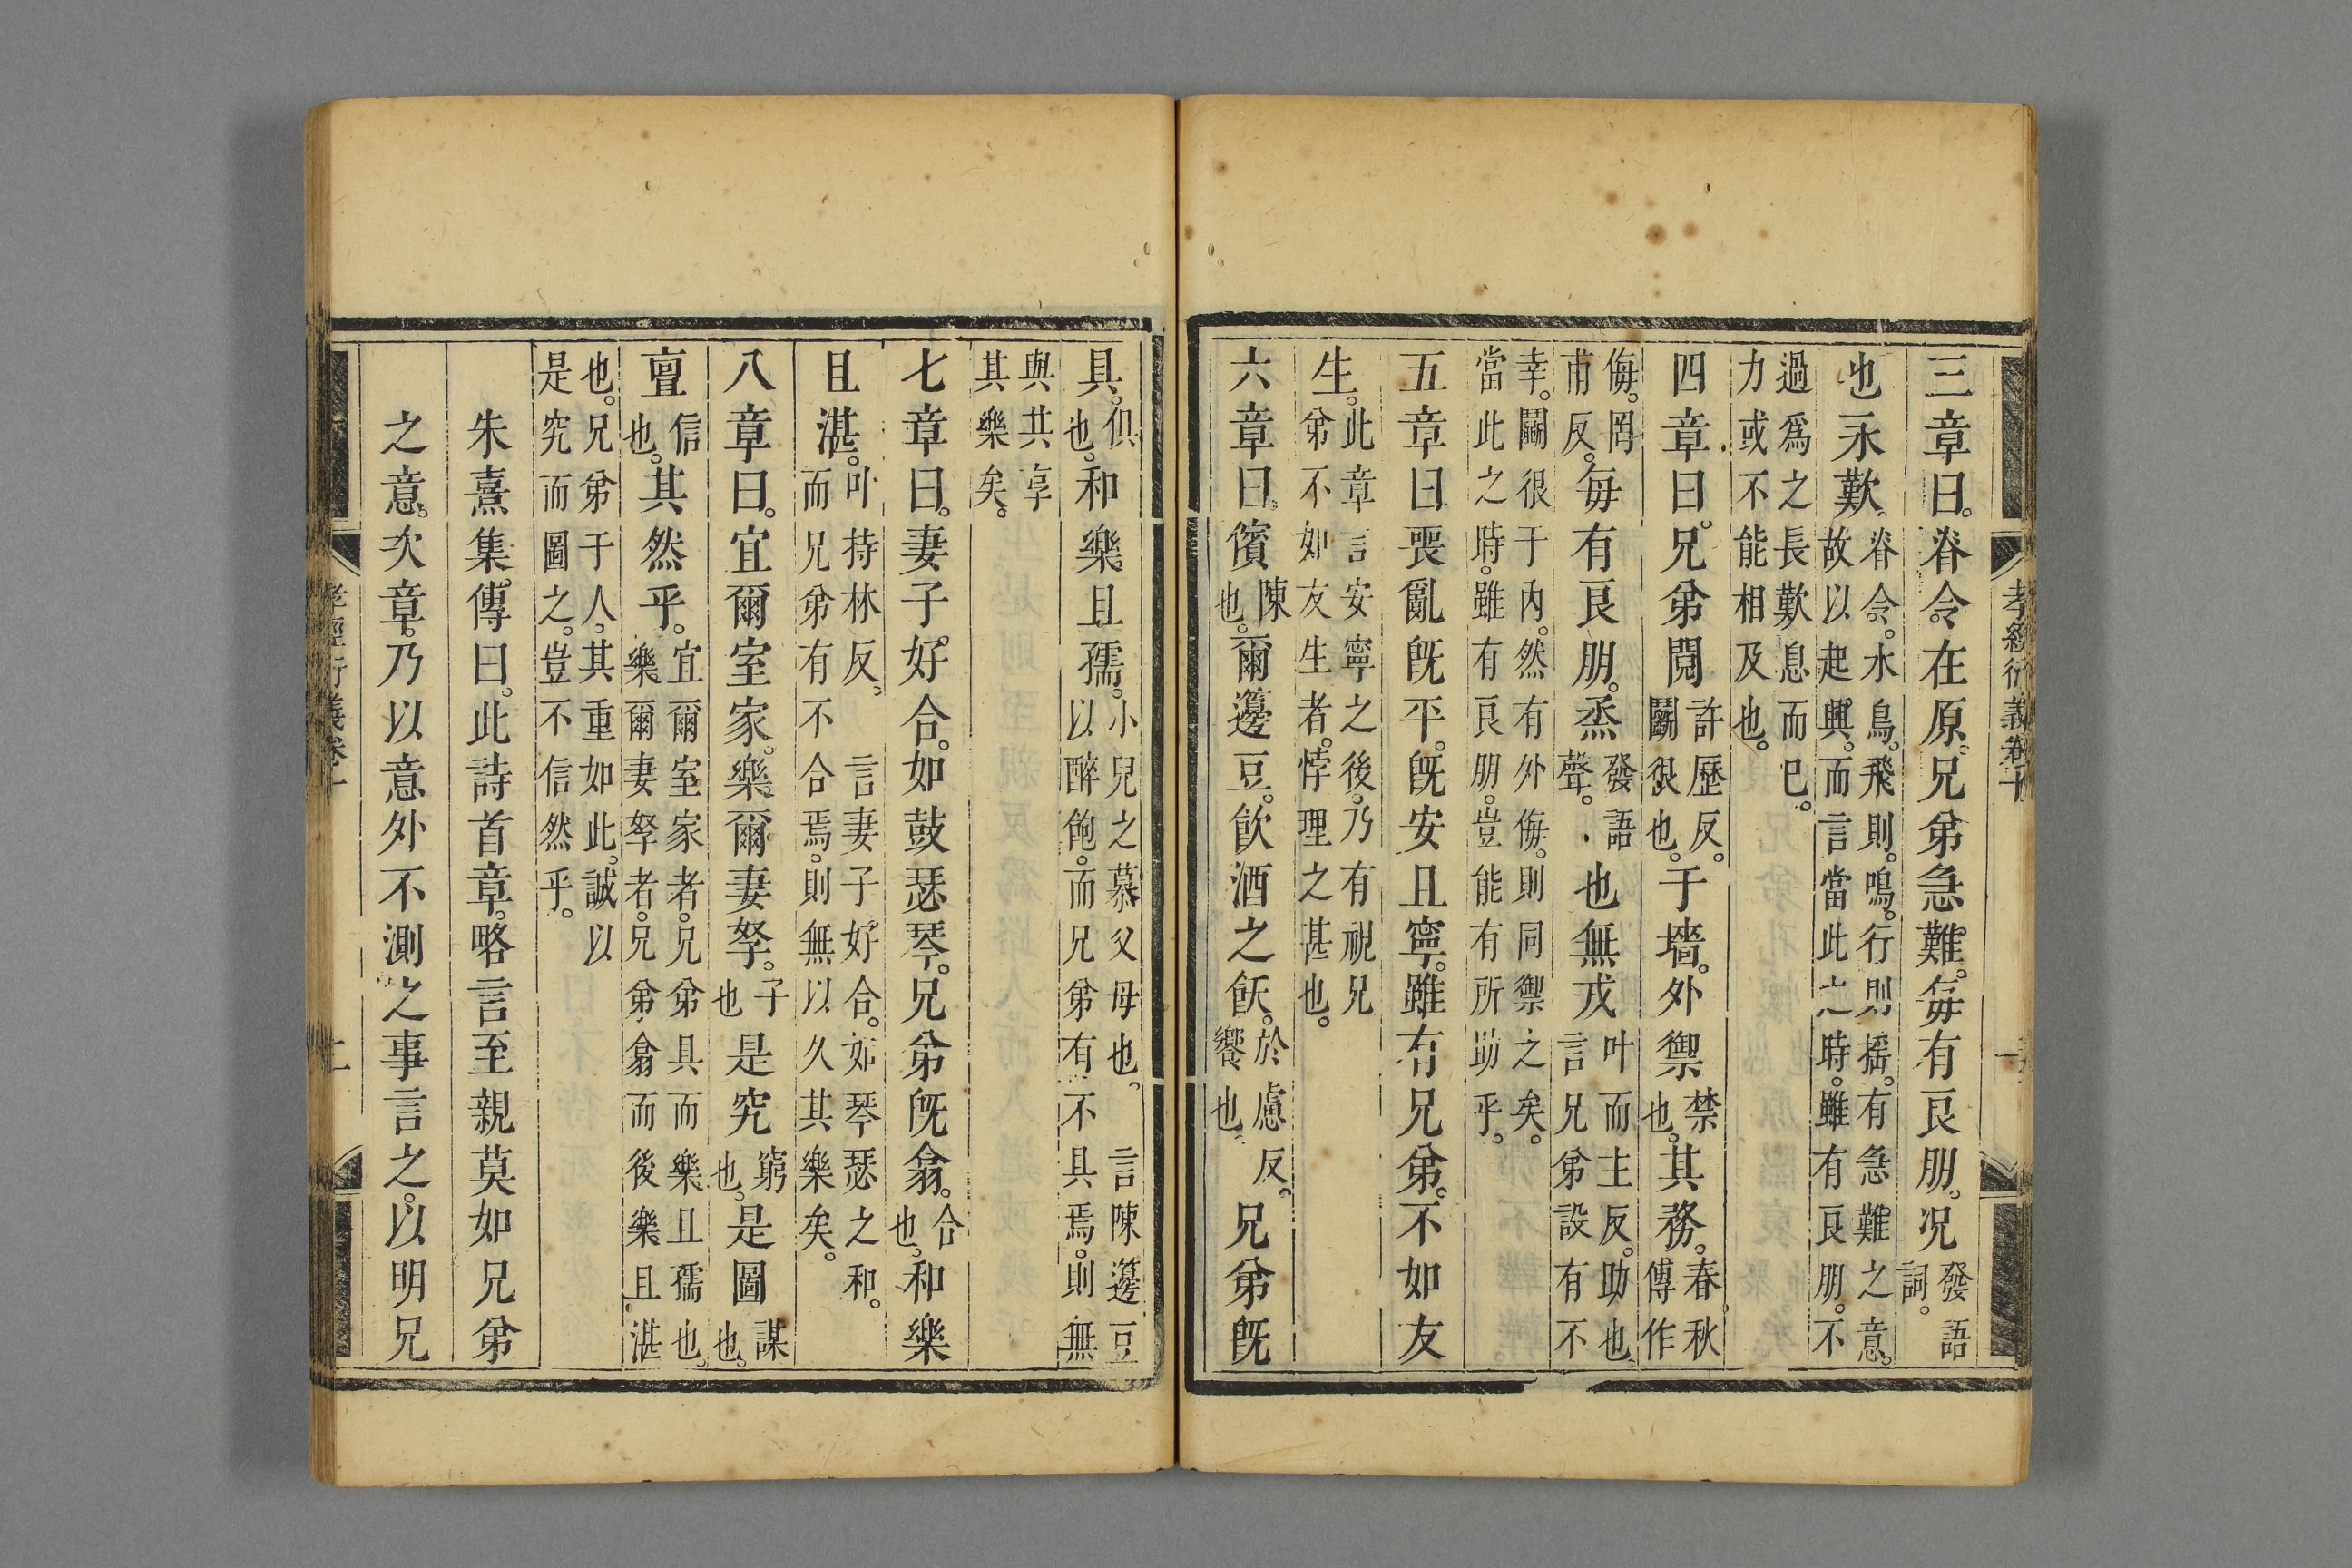 孝經衍義卷十
三章曰。脊令在原。兄弟急難。每有良朋。况發語詞。
也永歎。脊令。水鳥。飛則鳴。行則搖。有急難之意。故以起興。而言當此之時。雖有良朋。不
過爲之長歎息而已。力或不能相及也。
四章曰。兄弟鬩許歷反。鬭狠也。于墻。外禦禁也。其務。春秋傳作
侮。罔甫反。每有良朋。烝發語聲。也無戎叶而主反。助也。言兄弟設有不
幸。鬭很于內。然有外侮。則同禦之矣。當此之時。雖有良朋。豈能有所助乎。
五章曰喪亂旣平。旣安且寧。雖有兄弟。不如友
生。此章言安寧之後。乃有視兄弟不如友生者。悖理之甚也。
六章曰。儐陳也。爾籩豆。飲酒之飫。於慮反。饗也。兄弟旣
具。俱也。和樂且孺。小兒之慕父母也。言陳籩豆以醉飽。而兄弟有不具焉。則無
與共享其樂矣。
七章曰。妻子好合。如鼓瑟琴。兄弟旣翕。合也。和樂
且湛。叶持林反。言妻子好合。如琴瑟之和。而兄弟有不合焉。則無以久其樂矣。
八章曰。宜爾室家。樂爾妻孥。子也是究窮也。是圖謀也。
亶信也。其然乎。宜爾室家者。兄弟具而樂且孺也。樂爾妻孥者。兄弟翕而後樂且湛
也。兄弟于人。其重如此。誠以是究而圖之。豈不信然乎。
朱熹集傳曰。此詩首章。略言至親莫如兄弟
之意。次章。乃以意外不測之事言之。以明兄
孝經衍義卷十